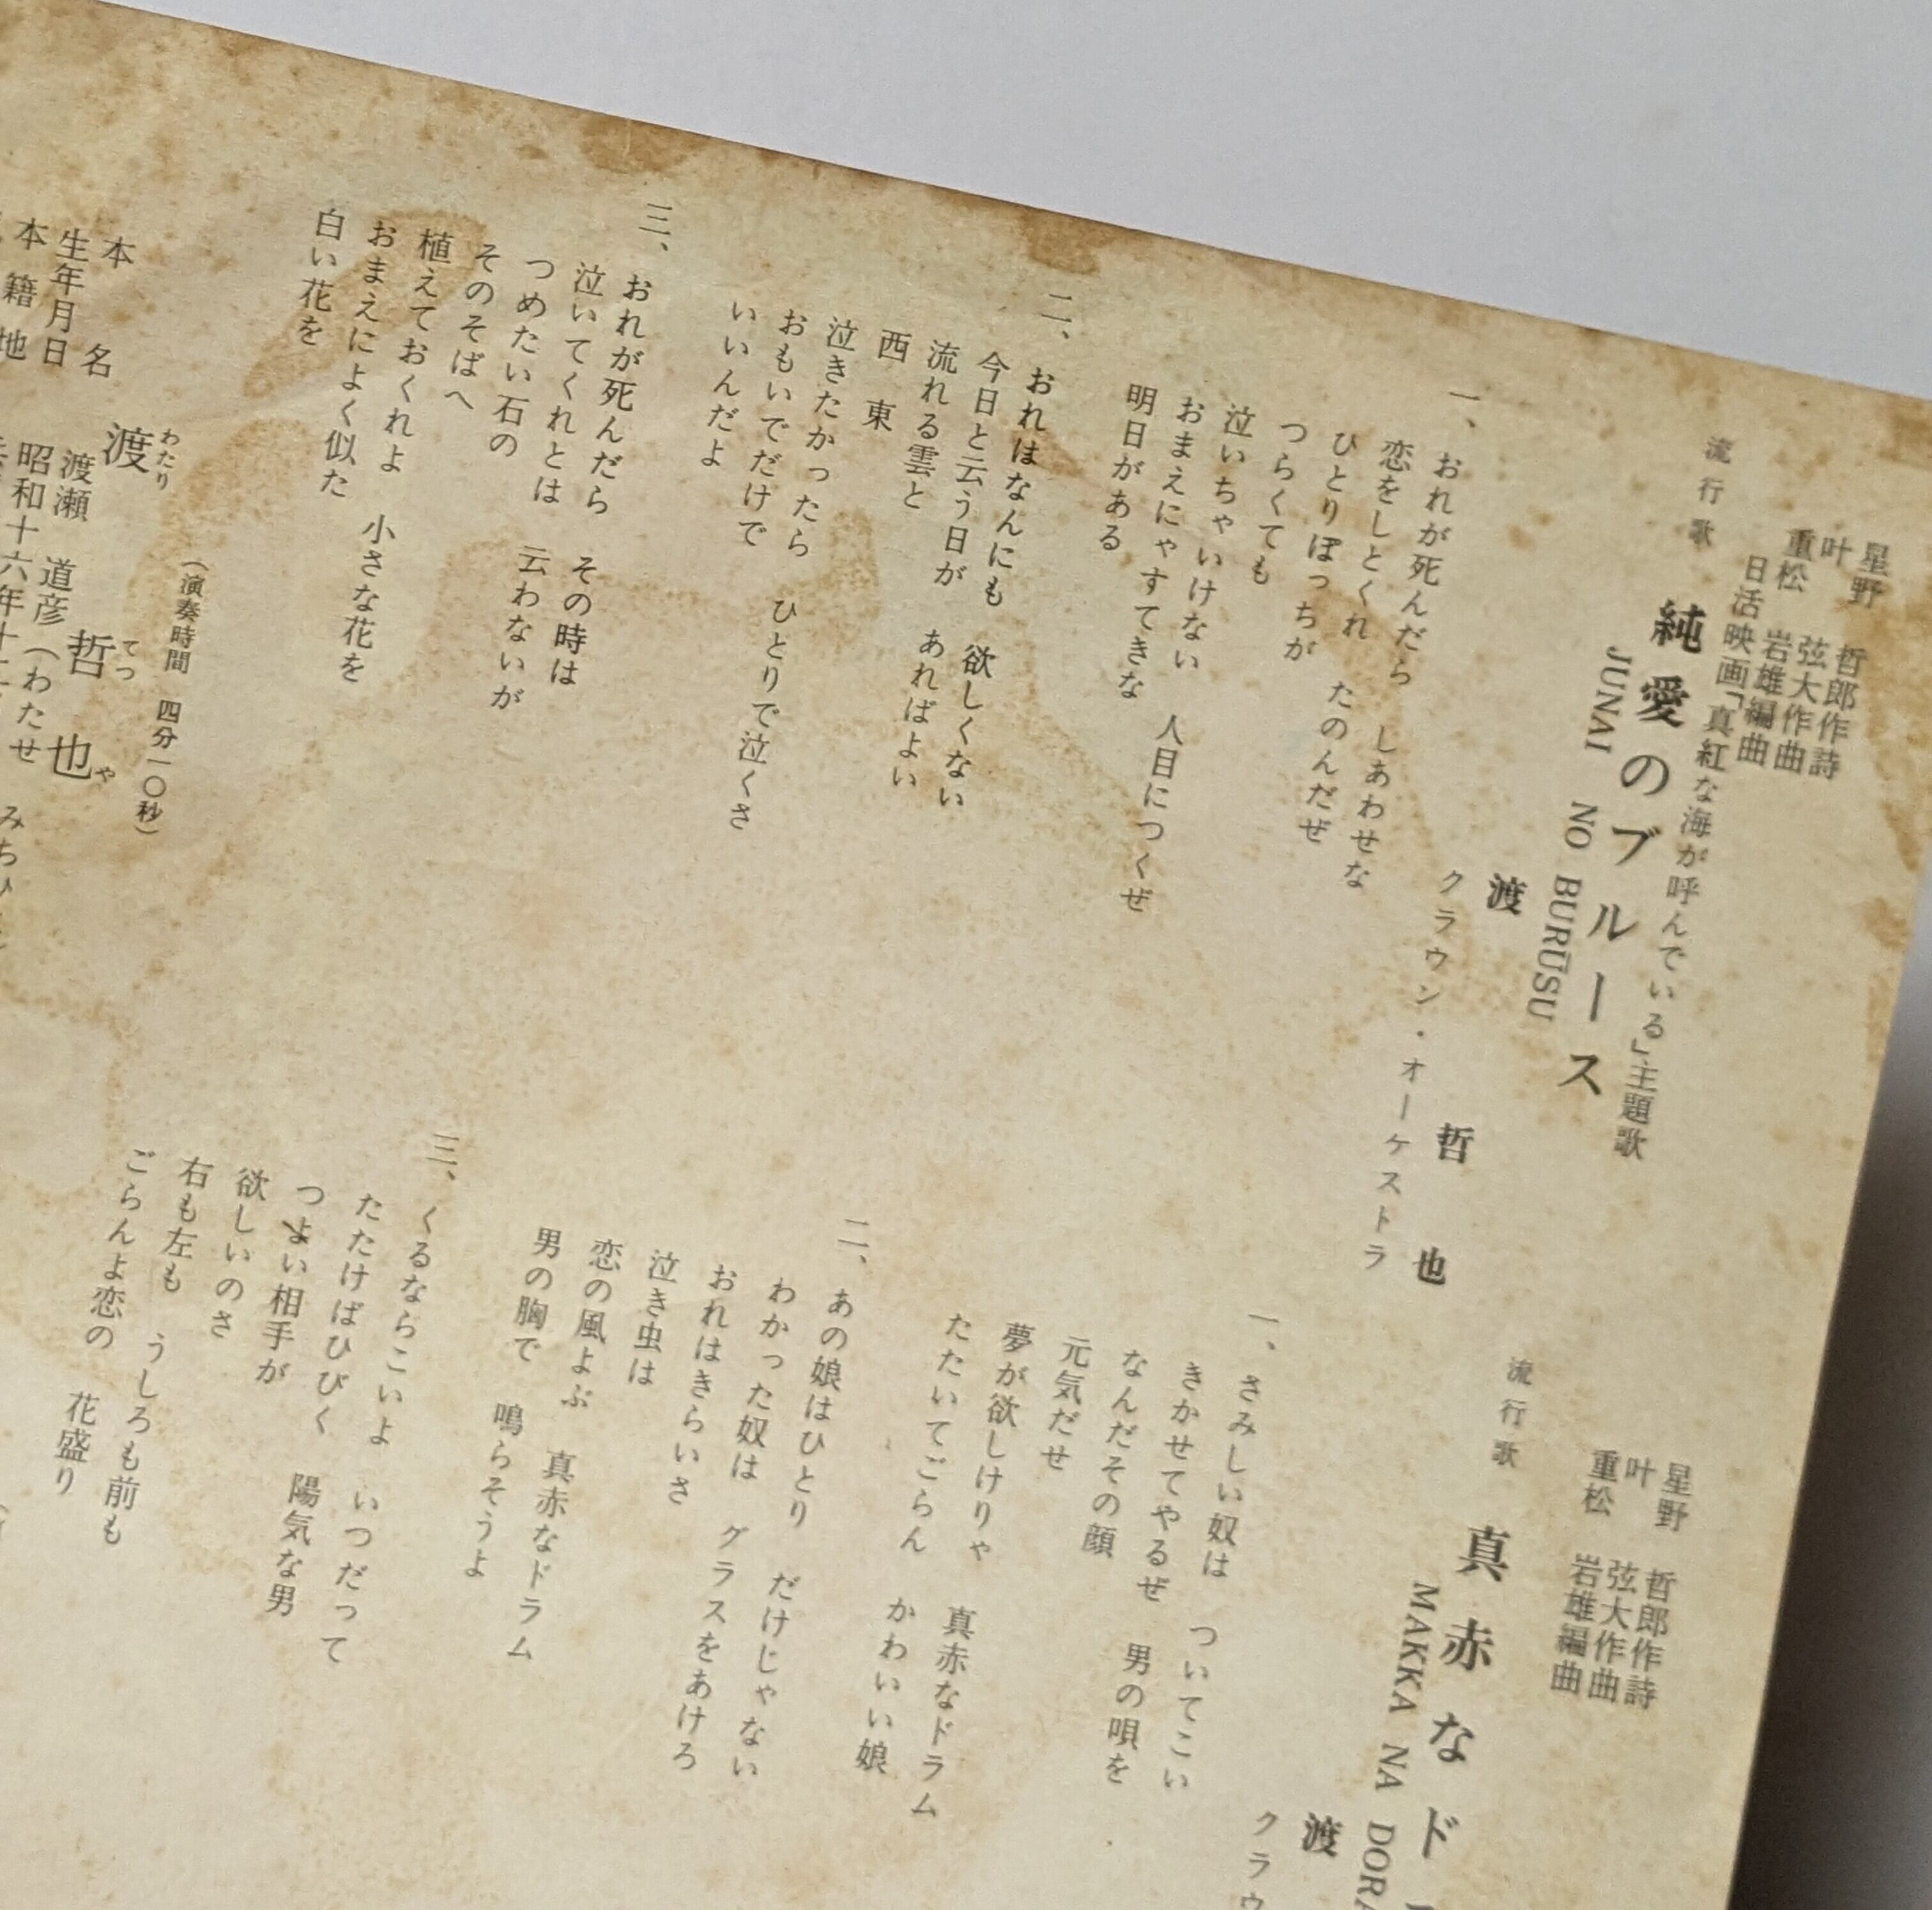 星野　哲郎作詩
叶　弦大作曲
重松　岩雄編曲
日活映画「真紅な海が呼んでいる」主題歌
流行歌
純愛のブルース
JUNAI NO BURŪSU
渡　哲也
クラウン・オーケストラ
一、おれが死んだら　しあわせな
恋をしとくれ　たのんだぜ
ひとりぽっちが
つらくても
泣いちゃいけない　人目につくぜ
おまえにゃすてきな
明日がある
二、おれはなんにも　欲しくない
今日と云う日が　あればよい
流れる雲と
西　東
泣きたかったら　ひとりで泣くさ
おもいでだけで
いいんだよ
三、おれが死んだら　その時は
泣いてくれとは　云わないが
つめたい石の
そのそばへ
植えておくれよ　小さな花を
おまえによく似た
白い花を
（演奏時間　四分一〇秒）
渡　哲也
わたり　てつ　や
本名　渡瀬　道彦（わたせ　みちひ
生年月日　昭和十六年十二
本籍地
星野　哲郎作詩
叶　弦大作曲
重松　岩雄編曲
流行歌
真赤なド
MAKKA NA DORA
渡
クラウ
一、さみしい奴は　ついてこい
きかせてやるぜ　男の唄を
なんだその顔
元気だせ
夢が欲しけりゃ　真赤なドラム
たたいてごらん　かわいい娘
二、あの娘はひとり　だけじゃない
わかった奴は　グラスをあけろ
おれはきらいさ
泣き虫は
恋の風よぶ　真赤なドラム
男の胸で　鳴らそうよ
三、くるならこいよ　いつだって
たたけばひびく　陽気な男
つよい相手が
欲しいのさ
右も左も　うしろも前も
ごらんよ恋の　花盛り